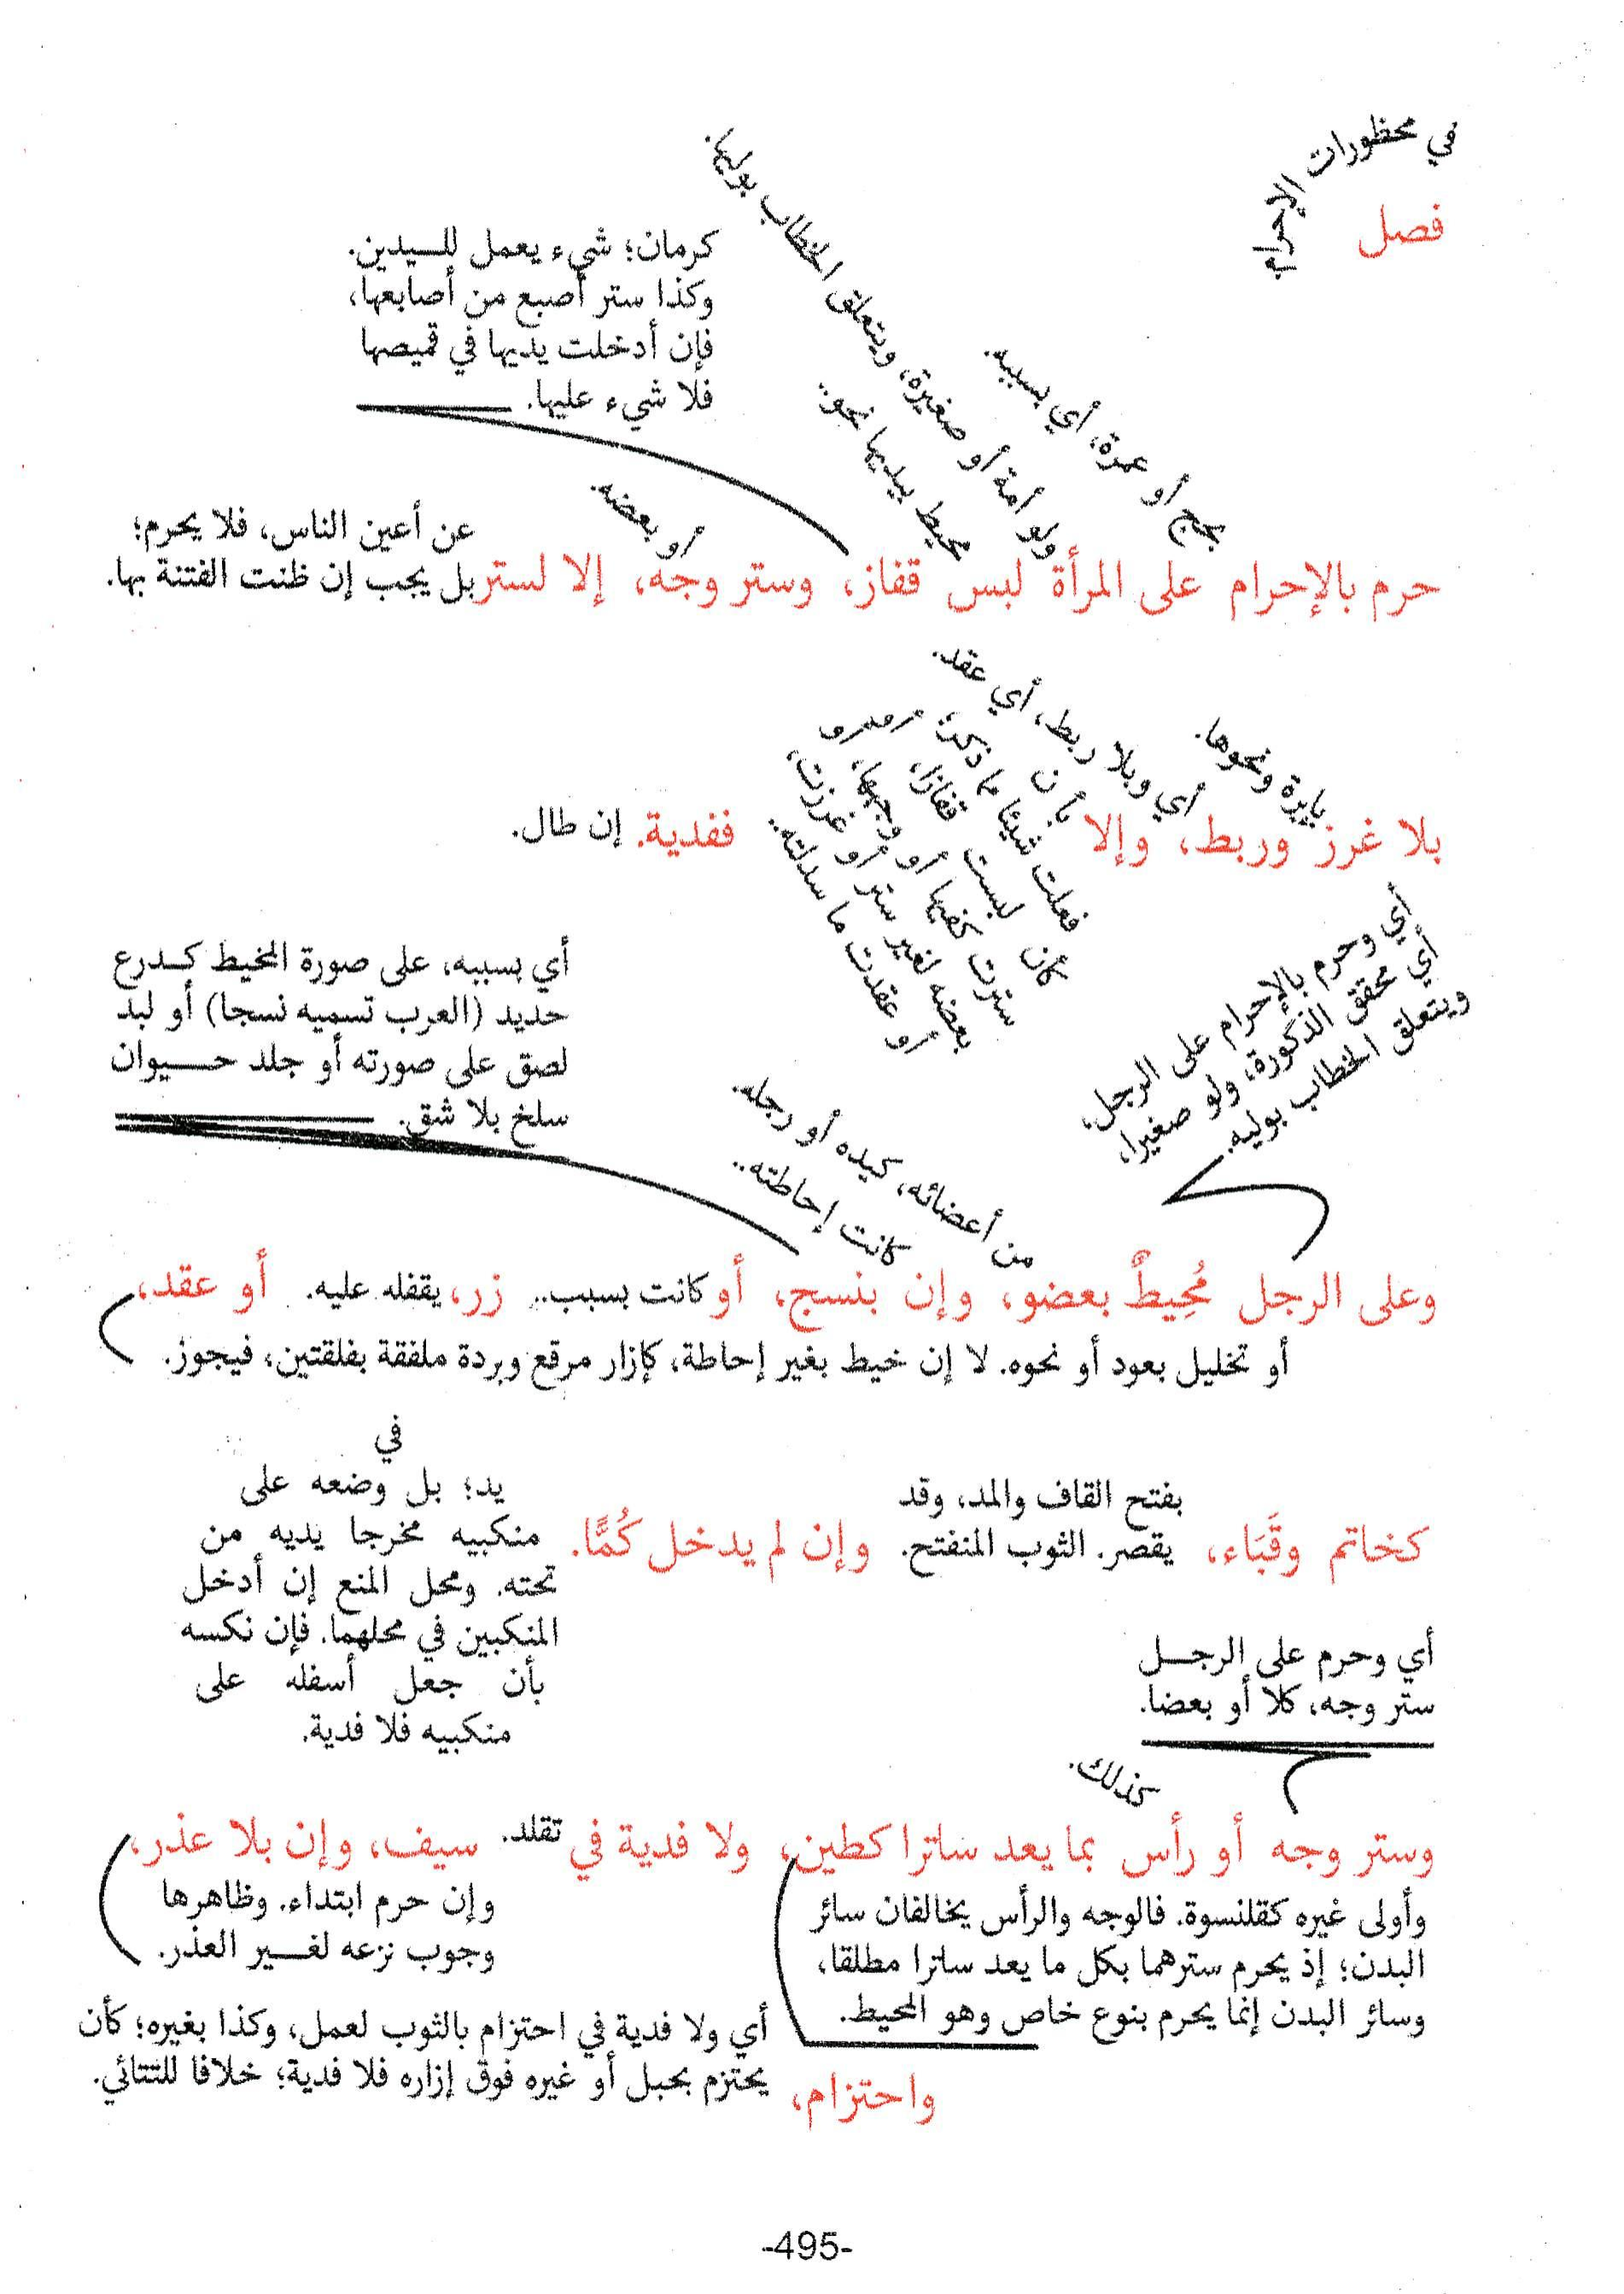 في محظورات الإحرام
فصل
بحج أو عمرة، أي بسببه.
ولو أمة أو صغيرة، ويتعلق الخطاب بوليها.
محيط بيديها نحو..
كرمان؛ شيء يعمل لليدين.
وكذا ستر أصبع من أصابعها،
فإن أدخلت يديها في قميصها
فلا شيء عليها.
أو بعضه.
حرم بالإحرام على المرأة لبس قفاز، وستر وجه، إلا لستر
عن أعين الناس، فلا يحرم؛
بل يجب إن ظنت الفتنة بها.
بإبرة ونحوها.
أي وبلا ربط، أي عقد.
بأن
فعلت شيئا مما ذكر؛
كأن لبست قفازا، أو
سترت كفيها أو وجهها، أو
بعضه لغير ستر أو غرزت،
أو عقدت ما سدلته..
بلا غرز وربط، وإلا ففدية. إن طال.
أي وحرم بالإحرام على الرجل،
أي محقق الذكورة، ولو صغيرا،
ويتعلق الخطاب بوليه.
من أعضائه، كيده أو رجله.
كانت إحاطته..
أي بسببه، على صورة المخيط كدرع
حديد (العرب تسميه نسجا) أو لبد
لصق على صورته أو جلد حيوان
سلخ بلا شق.
وعلى الرجل مُحِيطٌ بعضو، وإن بنسج، أو كانت بسبب.. زر، يقفله عليه. أو عقد،
أو تخليل بعود أو نحوه. لا إن خيط بغير إحاطة، كإزار مرقع وبردة ملفقة بفلقتين، فيجوز.
كخاتم وقَبَاء، بفتح القاف والمد، وقد
يقصر. الثوب المنفتح. وإن لم يدخل كُمًّا.
في
يد؛ بل وضعه على
منكبيه مخرجا يديه من
تحته. ومحل المنع إن أدخل
المنكبين في محلهما. فإن نكسه
بأن جعل أسفله على
منكبيه فلا فدية.
أي وحرم على الرجل
ستر وجه، كلا أو بعضا.
كذلك.
وستر وجه أو رأس بما يعد ساترا كطين، ولا فدية في تقلد. سيف، وإن بلا عذر،
وأولى غيره كقلنسوة. فالوجه والرأس يخالفان سائر
البدن؛ إذ يحرم سترهما بكل ما يعد ساترا مطلقا،
وسائر البدن إنما يحرم بنوع خاص وهو المحيط.
وإن حرم ابتداء. وظاهرها
وجوب نزعه لغير العذر.
واحتزام، أي ولا فدية في احتزام بالثوب لعمل، وكذا بغيره؛ كأن
يحتزم بحبل أو غيره فوق إزاره فلا فدية؛ خلافا للتتائي.
-495-